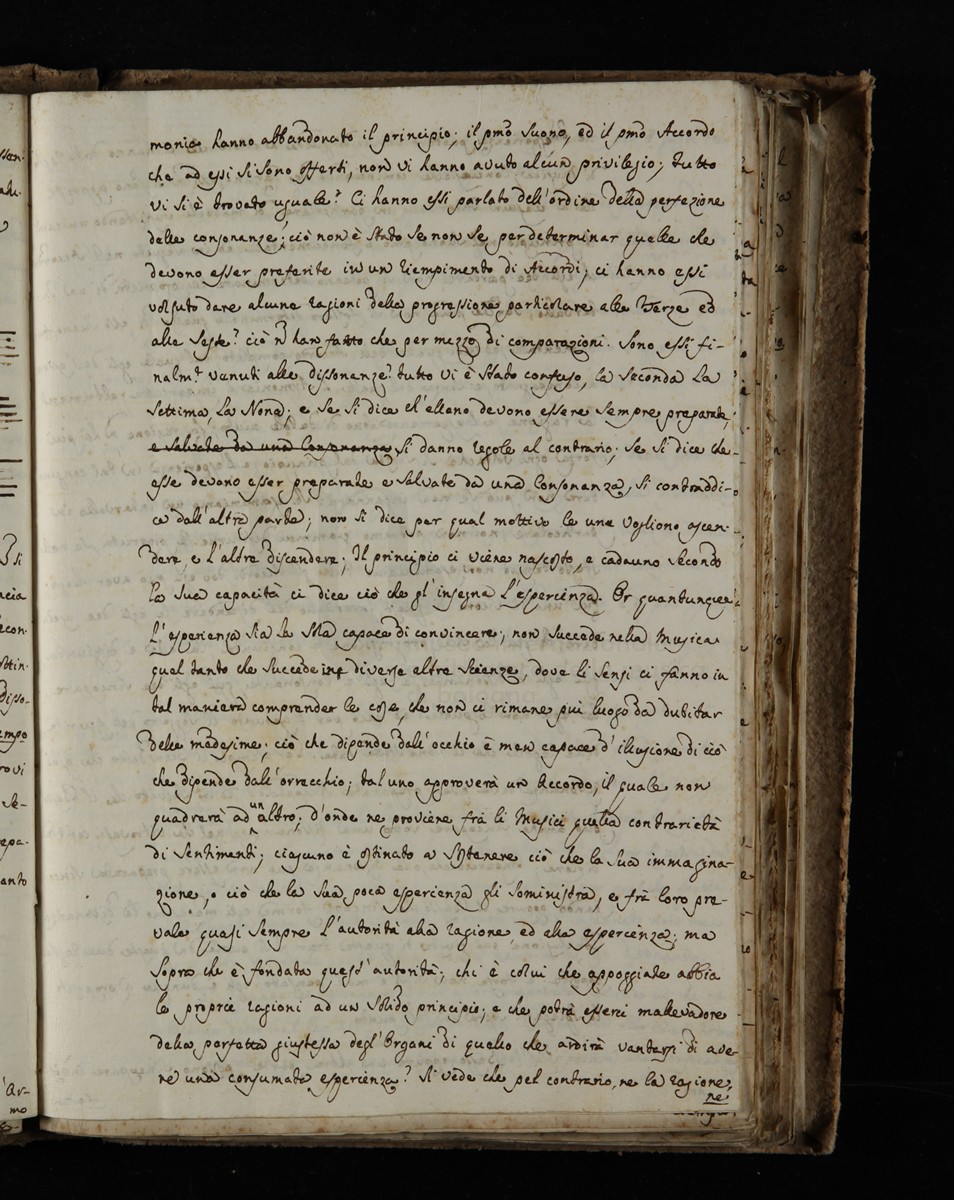 monia hanno abbandonato il principio; il pmo Suono, ed il pmo Accordo
che ad essi si sono offerti, non vi hanno avuto alcun privilegio; tutto
vi si è trovato uguale? Ci hanno essi parlato dell'ordine della perfezione
delle consonanze; ciò non è stato se non se per determinar quelle che
devono esser preferite in un riempimento di Accordi; ci hanno essi
volsuto dare alcune ragioni della progressione particolare alle Terze ed
alle Seste? ciò n han fatto che per mezzo di comparazioni. Sono essi fi-
nalmte venuti alle dissonanze? tutto vi è stato confuso, la Seconda La
Settima, La Nona; e se si dice ch'elleno devono essere sempre preparate,
e salvate da una Consonanza si danno regole al contrario; se si dice che
esse devono esser preparate e salvate da una Consonanza, si contraddi-
ce dall'altra parte; non si dice per qual mottivo le une vogliono ascen-
dere, e l'altre discendere; Il principio ci viene nascosto, e cadauno secondo
la sua capacità ci dice ciò che gl'insegna L'esperienza. Or quantunque
L'esperienza sia la sola capace di convincere; non succede nella Musica
qual tanto che succede in diverse altre Scienze, dove li sensi ci fanno in
tal maniera comprender le cose, che non ci rimane più luogo da dubitar
delle medesime; ciò che dipende dall'occhio è men capace d'illusione di ciò
che dipende dall'orrecchio; tal'uno approverà un Accordo, il quale non
quadrerà ad un altro; d'onde ne proviene frà li Musici quella contrarietà
di sentimenti; ciascuno è ostinato a sostenere ciò che la sua immagina-
zione, o ciò che la sua poca esperienza gli somministra, e frà loro pre-
vale quasi sempre l'autorità alla ragione, ed alla esperienza; ma
sopra che è fondata quest'autorità; chi è colui che appoggiate abbia
le proprie ragioni ad un solido principio; e che potrà esserci mallevadore
della perfetta giustessa degl'Organi di quello che ardirà vantarsi di ave-
re una consumata esperienza? Si vede che pel contrario, ne la ragione,
ne